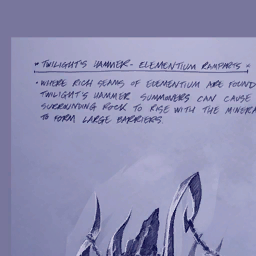 • TWILIGHT'S HAMMER - ELEMENTIUM RAMPARTS •
• WHERE RICH SEAMS OF ELEMENTIUM ARE FOUND
TWILIGHT'S HAMMER SUMMONERS CAN CAUSE
SURROUNDING ROCK TO RISE WITH THE MINERA
TO FORM LARGE BARRIERS.